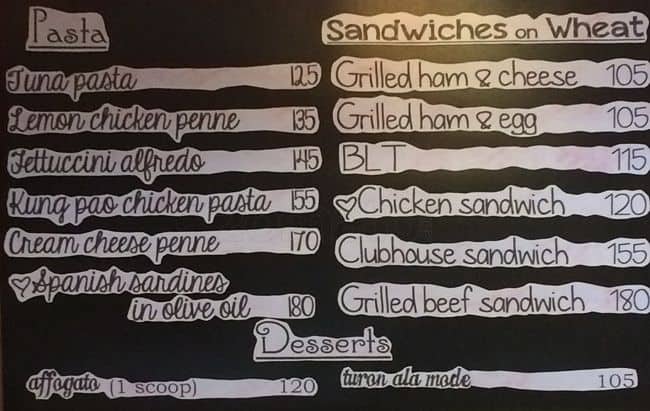 Pasta
Tuna pasta 125
Lemon chicken penne 135
Fettuccini alfredo 145
Kung pao chicken pasta 155
Cream cheese penne 170
♡Spanish sardines
in olive oil 180
Sandwiches on Wheat
Grilled ham & cheese 105
Grilled ham & egg 105
BLT 115
♡Chicken sandwich 120
Clubhouse sandwich 155
Grilled beef sandwich 180
Desserts
affogato (1 scoop) 120
turon ala mode 105